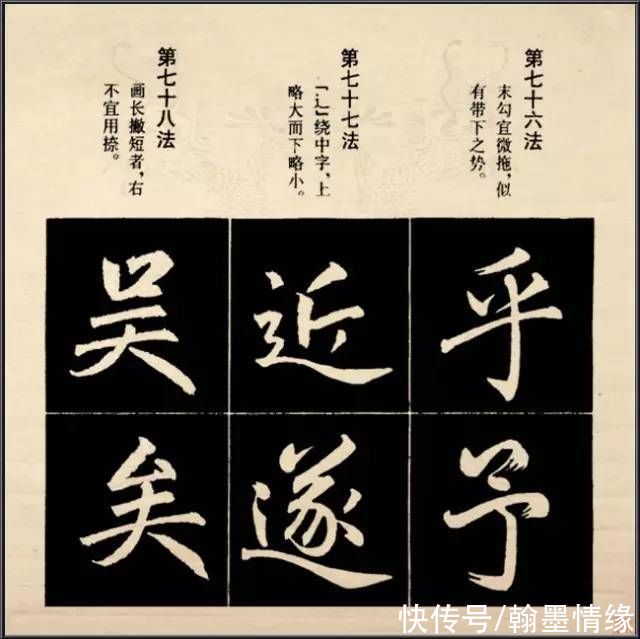 第七十六法
末勾宜微拖，似
有带下之势。
第七十七法
「辶」绕中字，上
略大而下略小。
第七十八法
画长撇短者，右
不宜用捺。
乎
予
近
遂
吴
矣
快传号/翰墨情缘